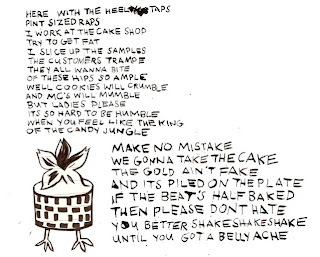 HERE WITH THE HEEL TAPS
PINT SIZED RAPS
I WORK AT THE CAKE SHOP
TRY TO GET FAT
I SLICE UP THE SAMPLES
THE CUSTOMERS TRAMPE
THEY ALL WANNA BITE
OF THESE HIPS SO AMPLE
WELL COOKIES WILL CRUMBLE
AND MC'S WILL MUMBLE
BUT LADIES PLEASE
ITS SO HARD TO BE HUMBLE
WHEN YOU FEEL LIKE THE KING
OF THE CANDY JUNGLE
MAKE NO MISTAKE
WE GONNA TAKE THE CAKE
THE GOLD AIN'T FAKE
AND ITS PILED ON THE PLATE
IF THE BEAT'S HALF BAKED
THEN PLEASE DONT HATE
YOU BETTER SHAKESHAKESHAKE
UNTIL YOU GOT A BELLY ACHE